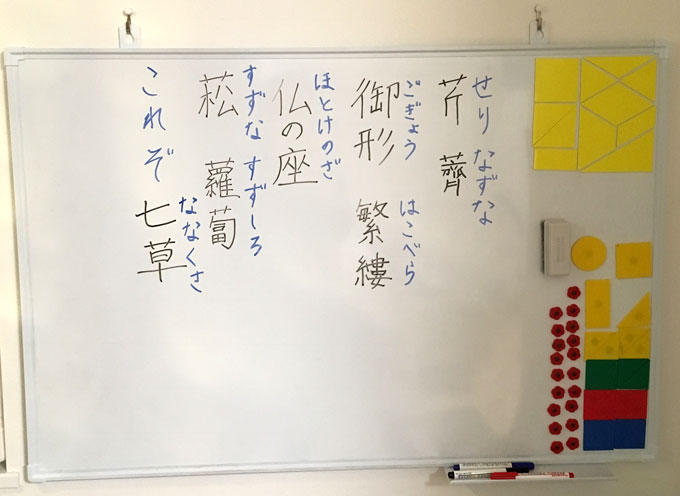 芹 薺
せり なずな
御形 繁縷
ごぎょう はこべら
仏の座
ほとけのざ
菘 蘿蔔
すずな すずしろ
これぞ七草
ななくさ